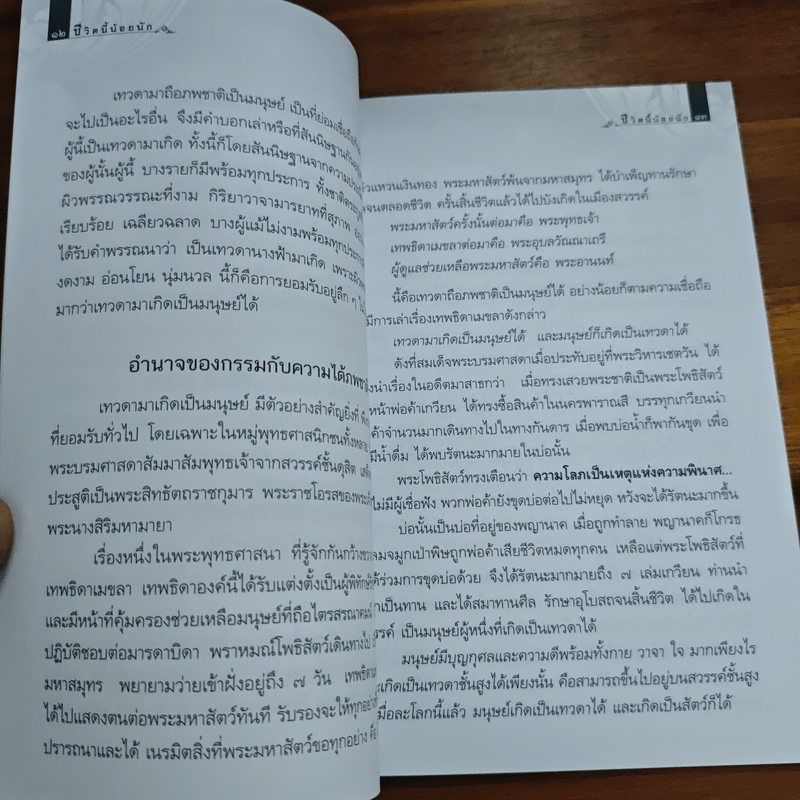 ๑๒ ชีวิตนี้น้อยนัก
เทวดามาถือภพชาติเป็นมนุษย์ เป็นที่ย่อมเชื่อถือกัน
จะไปเป็นอะไรอื่น จึงมีคำบอกเล่าหรือที่สันนิษฐานกัน
ผู้นี้เป็นเทวดามาเกิด ทั้งนี้ก็โดยสันนิษฐานจากความ
ของผู้นั้นผู้นี้ บางรายก็มีพร้อมทุกประการ ทั้งชาติตระกูล
ผิวพรรณวรรณะที่งาม กิริยาวาจามารยาทที่สุภาพ
เรียบร้อย เฉลียวฉลาด บางผู้แม้ไม่งามพร้อมทุกประการ
ได้รับคำพรรณนาว่า เป็นเทวดานางฟ้ามาเกิด เพราะ
งดงาม อ่อนโยน นุ่มนวล นี้ก็คือการยอมรับอยู่ลึก ๆ
มากว่าเทวดามาเกิดเป็นมนุษย์ได้
อำนาจของกรรมกับความได้ภพชาติ
เทวดามาเกิดเป็นมนุษย์ มีตัวอย่างสำคัญยิ่งที่
ที่ยอมรับทั่วไป โดยเฉพาะในหมู่พุทธศาสนิกชนทั้งหลาย
พระบรมศาสดาสัมมาสัมพุทธเจ้าจากสวรรค์ชั้นดุสิต
ประสูติเป็นพระสิทธัตถราชกุมาร พระราชโอรสของพระ
พระนางสิริมหามายา
เรื่องหนึ่งในพระพุทธศาสนา ที่รู้จักกันกว้างขวาง
เทพธิดาเมขลา เทพธิดาองค์นี้ได้รับแต่งตั้งเป็นผู้พิทักษ์
และมีหน้าที่คุ้มครองช่วยเหลือมนุษย์ที่ถือไตรสรณาคมน์
ปฏิบัติชอบต่อมารดาบิดา พราหมณ์โพธิสัตว์เดินทางไป
มหาสมุทร พยายามว่ายเข้าฝั่งอยู่ถึง ๗ วัน เทพธิดา
ได้ไปแสดงตนต่อพระมหาสัตว์ทันที รับรองจะให้ทุกอย่าง
ปรารถนาและได้ เนรมิตสิ่งที่พระมหาสัตว์ขอทุกอย่าง คือ
ชีวิตนี้น้อยนัก ๑๓
แหวนเงินทอง พระมหาสัตว์พ้นจากมหาสมุทร ได้บำเพ็ญทานรักษา
จนตลอดชีวิต ครั้นสิ้นชีวิตแล้วได้ไปบังเกิดในเมืองสวรรค์
พระมหาสัตว์ครั้งนั้นต่อมาคือ พระพุทธเจ้า
เทพธิดาเมขลาต่อมาคือ พระอุบลวัณณาเถรี
ผู้ดูแลช่วยเหลือพระมหาสัตว์คือ พระอานนท์
นี้คือเทวดาถือภพชาติเป็นมนุษย์ได้ อย่างน้อยก็ตามความเชื่อถือ
มีการเล่าเรื่องเทพธิดาเมขลาดังกล่าว
เทวดามาเกิดเป็นมนุษย์ได้ และมนุษย์ก็เกิดเป็นเทวดาได้
ดังที่สมเด็จพระบรมศาสดาเมื่อประทับอยู่ที่พระวิหารเชตวัน ได้
นำเรื่องในอดีตมาสาธกว่า เมื่อทรงเสวยพระชาติเป็นพระโพธิสัตว์
หน้าพ่อค้าเกวียน ได้ทรงซื้อสินค้าในนครพาราณสี บรรทุกเกวียนนำ
ค้าจำนวนมากเดินทางไปในทางกันดาร เมื่อพบบ่อน้ำก็พากันขุด เพื่อ
มีน้ำดื่ม ได้พบรัตนะมากมายในบ่อนั้น
พระโพธิสัตว์ทรงเตือนว่า ความโลภเป็นเหตุแห่งความพินาศ...
ไม่มีผู้เชื่อฟัง พวกพ่อค้ายังขุดบ่อต่อไปไม่หยุด หวังจะได้รัตนะมากขึ้น
บ่อนั้นเป็นบ่อที่อยู่ของพญานาค เมื่อถูกทำลาย พญานาคก็โกรธ
ลมจมูกเป่าพิษถูกพ่อค้าเสียชีวิตหมดทุกคน เหลือแต่พระโพธิสัตว์ที่
ได้ร่วมการขุดบ่อด้วย จึงได้รัตนะมากมายถึง ๗ เล่มเกวียน ท่านนำ
เป็นทาน และได้สมาทานศีล รักษาอุโบสถจนสิ้นชีวิต ได้ไปเกิดใน
สวรรค์ เป็นมนุษย์ผู้หนึ่งที่เกิดเป็นเทวดาได้
มนุษย์มีบุญกุศลและความดีพร้อมทั้งกาย วาจา ใจ มากเพียงไร
จะเกิดเป็นเทวดาชั้นสูงได้เพียงนั้น คือสามารถขึ้นไปอยู่บนสวรรค์ชั้นสูง
เมื่อละโลกนี้แล้ว มนุษย์เกิดเป็นเทวดาได้ และเกิดเป็นสัตว์ก็ได้